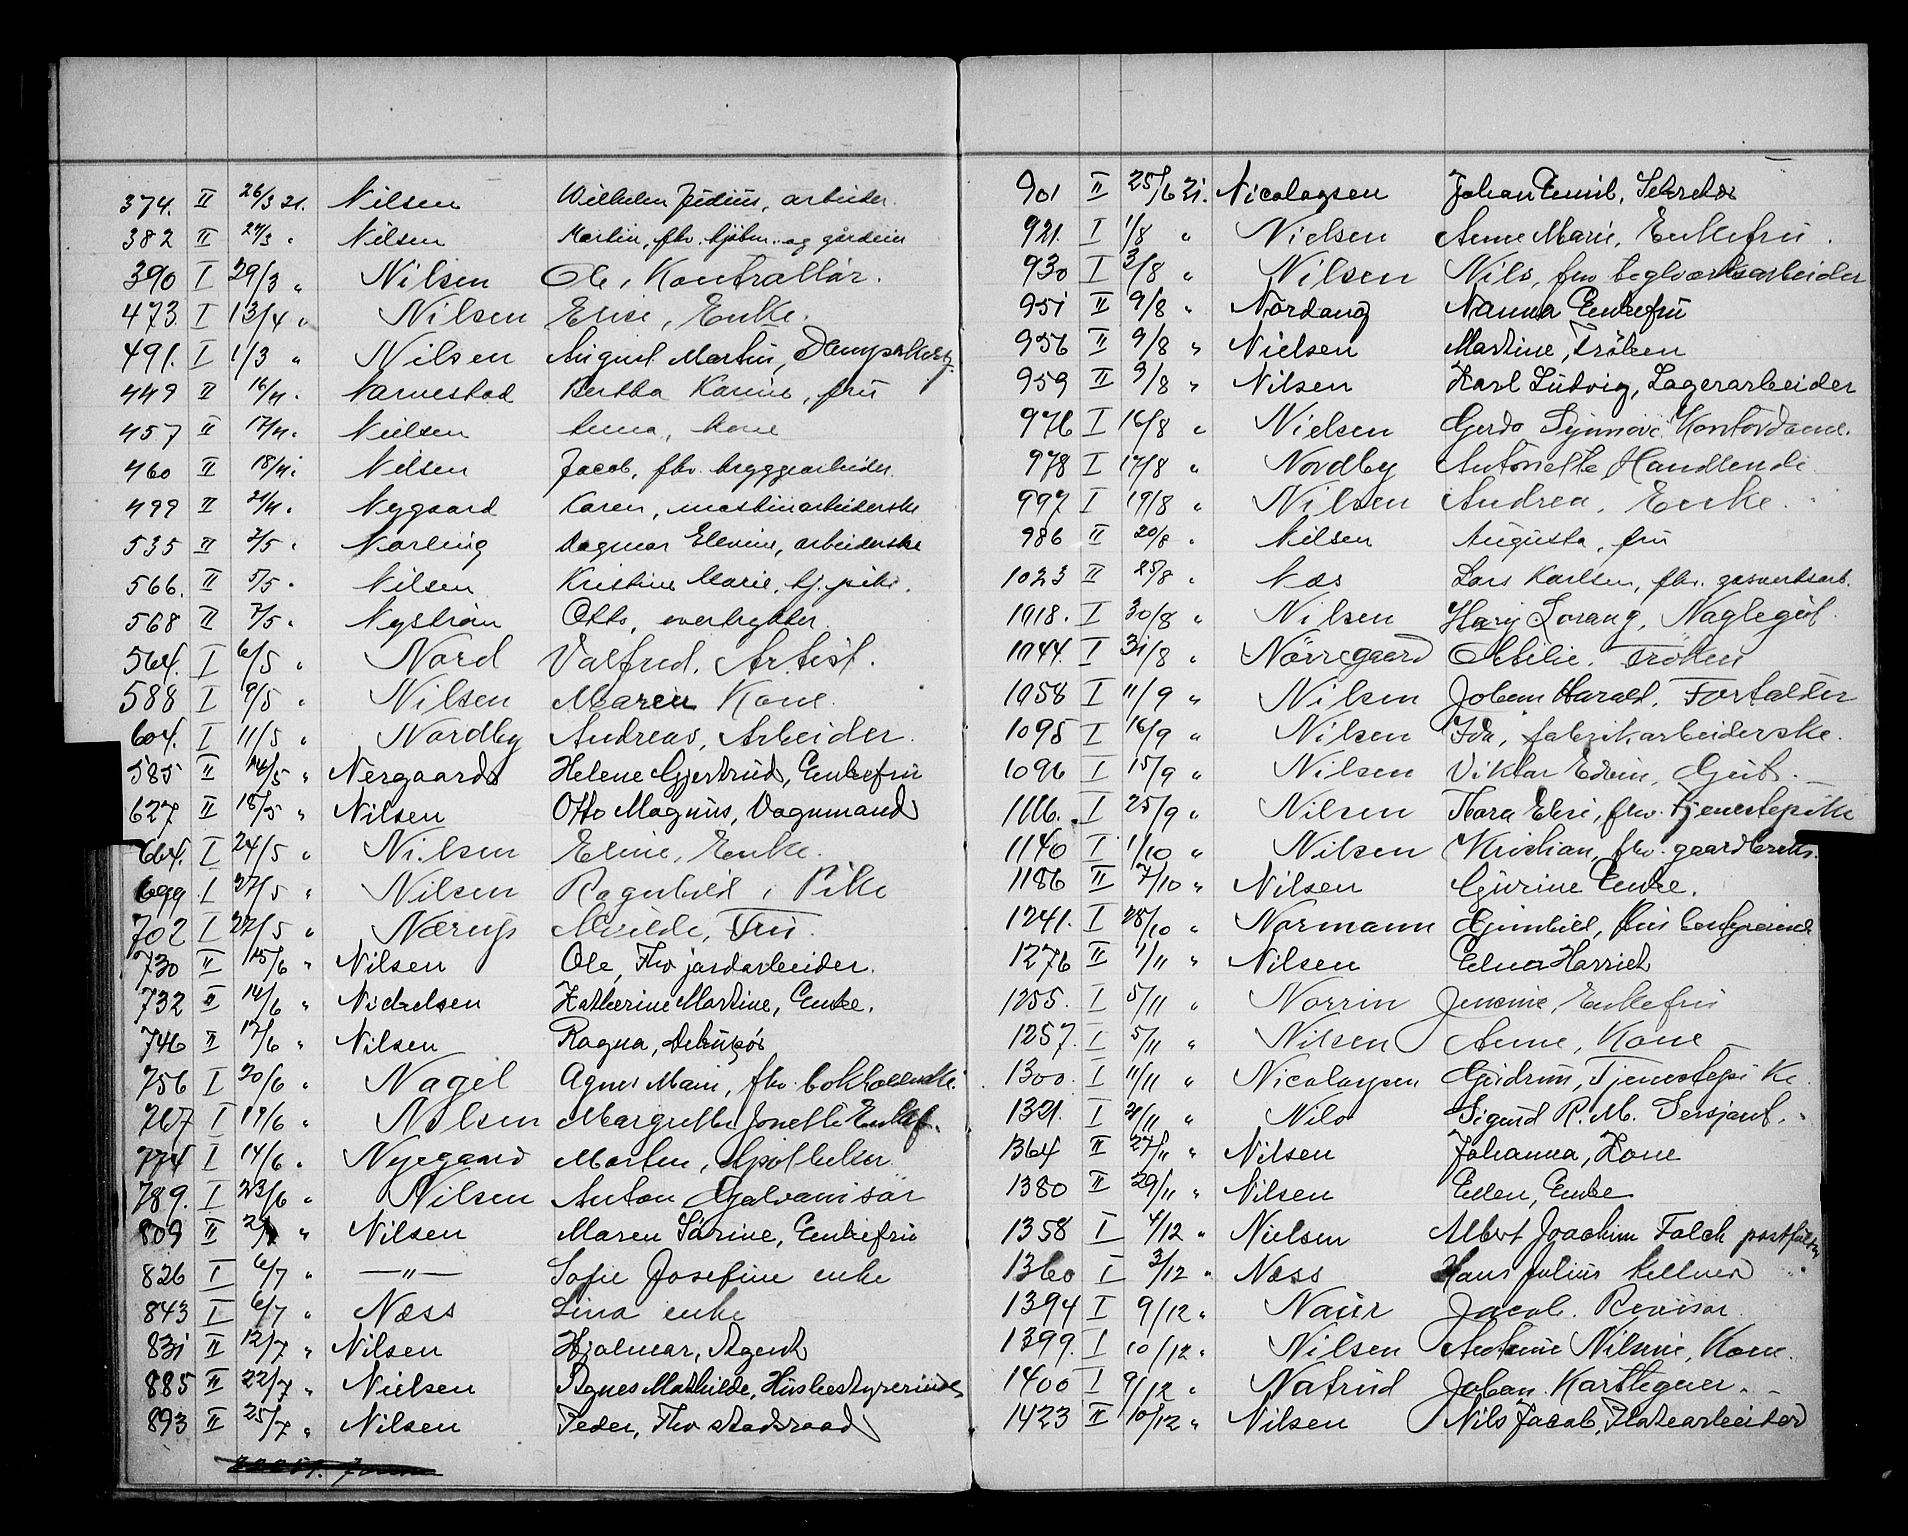 374. II 26/3 21. Nilsen Wilhelm Julius, arbeider.
382 II 27/3 " Nilsen Martin, fhv. kjøbm. og gårdeier
390 I 29/3 " Nilsen Ole, Kontrollør.
473. I 13/4 " Nilsen Elise, Enke.
491. I 1/3 " Nilsen August Martin,
449 II 16/4. Narvestad Bertha Karine, fru
457 II 17/4. Nielsen Anna, kone
460 II 18/4. Nilsen Jacob, fhv. bryggearbeider.
499 II 21/4. Nygaard Karen, maskinarbeiderske
535 II 2/5 " Norling Dagmar Elevine, arbeiderske
566. II 5/5 " Nilsen Kristine Marie, tj. pike.
568 II 7/5 " Nystrøm Otto, overbrygger.
564. I 6/5 " Nord Valfred, Artist.
588 I 9/5 " Nilsen Maren Kone.
604. I 11/5 " Nordby Andreas, Arbeider.
585 II 14/5 " Nergaard Helene Gjertrud, Enkefru
627 II 18/5 " Nilsen Otto Magnus, Vognmand
664. I 24/5 " Nilsen Eline, Enke.
699 I 27/5 " Nilsen Ragnhild, Pike
702 I 27/5 " Nærup Fru.
730 II 15/6 " Nilsen Ole, Fhv jordarbeider.
732 II 14/6 " Nickelsen Katherine Martine, Enke.
746 II 17/6 " Nilsen Ragna,
756 I 20/6 " Nagel Agnes Marie, fhv. bokholderske.
767 I 19/6 " Nilsen Margrethe Jonette Enkef.
774 I 14/6 " Nyegaard Morten, Apotheker.
789. I 23/6 " Nilsen Anton Galvanisør
809 II " Nilsen Maren Sørine, Enkefru
826 I 6/7 " —"— Sofie Josefine enke
843 I 6/7 " Næss Lina enke
831 II 12/7 " Nilsen Hjalmar, Agent
885 II 22/7 " Nielsen Agnes Mathilde, Husbestyrerinde
893 II 25/7 " Nilsen Peder, Fhv stadsraad
901 II 25/6 21. Nicolaysen Johan Emil, Sekretær
921. I 1/8 " Nielsen Anne Marie, Enkefru.
930 I 3/8 " Nilsen Nils, fhv teglverksarbeider
951 II 9/8 " Nordang Nanna Enkefru
956 II 9/8 " Nielsen Martine, Frøken
959 II 9/8 " Nilsen Karl Ludvig, Lagerarbeider
976 I 16/8 " Nielsen Gerda Synnøve Kontordame.
978 I 17/8 " Nordby Antonette Handlende
997 I 19/8 " Nilsen Andrea, Enke.
986 II 20/8 " Nilsen Augusta, fru
1023 II 25/8 " Næs Lars Karlsen, fhv. gasverksarb.
1018. I 30/8 " Nilsen Harij Lorang, Naglegut.
1044. I 31/8 " Nørregaard Otilie. Frøken
1058 I 11/9 " Nilsen Johan Harald, Forfatter
1095 I 16/9 " Nilsen Ida, fabrikarbeiderske.
1096 I 15/9 " Nilsen Viktor Edvin, Gut.
1116. I 25/9 " Nilsen Thora Elise, fhv. Tjenestepike
1140 I 1/10 " Nilsen Kristian, fhv. gaardbruk.
1186 II 7/10 " Nilsen Gurine Enke.
1241. I 28/10 " Normann Gunhild,
1276 II 1/11 " Nilsen Edna Harriet
1255. I 5/11 " Norrin Jensine, Enkefru
1257. I 5/11 " Nilsen Anne, Kone
1300. I 11/11 " Nicolaysen Gudrun, Tjenestepike.
1321. I 21/11 " Nilo Sigurd R. M. Sersjant.
1364 II 27/11 " Nilsen Johanna, Kone
1380 II 29/11 " Nilsen Ellen, Enke
1358 I 4/12 " Nielsen Albert Joachim Falck
1360 I 3/12 " Næss Hans Julius kellner
1394 I 9/12 " Naur Jacob. Revisor.
1399. I 10/12 " Nilsen Antonie Nilsine, Kone.
1400 I 9/12 " Natrud Johan. Karttegner.
1423 II 10/12 " Nilsen Nils Jacob, Platearbeider